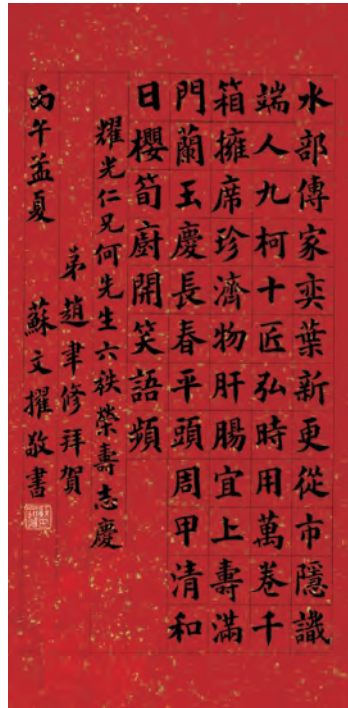 水部傳家奕葉新更從市隱識
端人九柯十匠弘時用萬卷千
箱擁席珍濟物肝腸宜上壽滿
門蘭玉慶長春平頭周甲清和
日櫻筍廚開笑語頻
耀光仁兄何先生六秩榮壽志慶
弟趙聿修拜賀
丙午孟夏 蘇文擢敬書